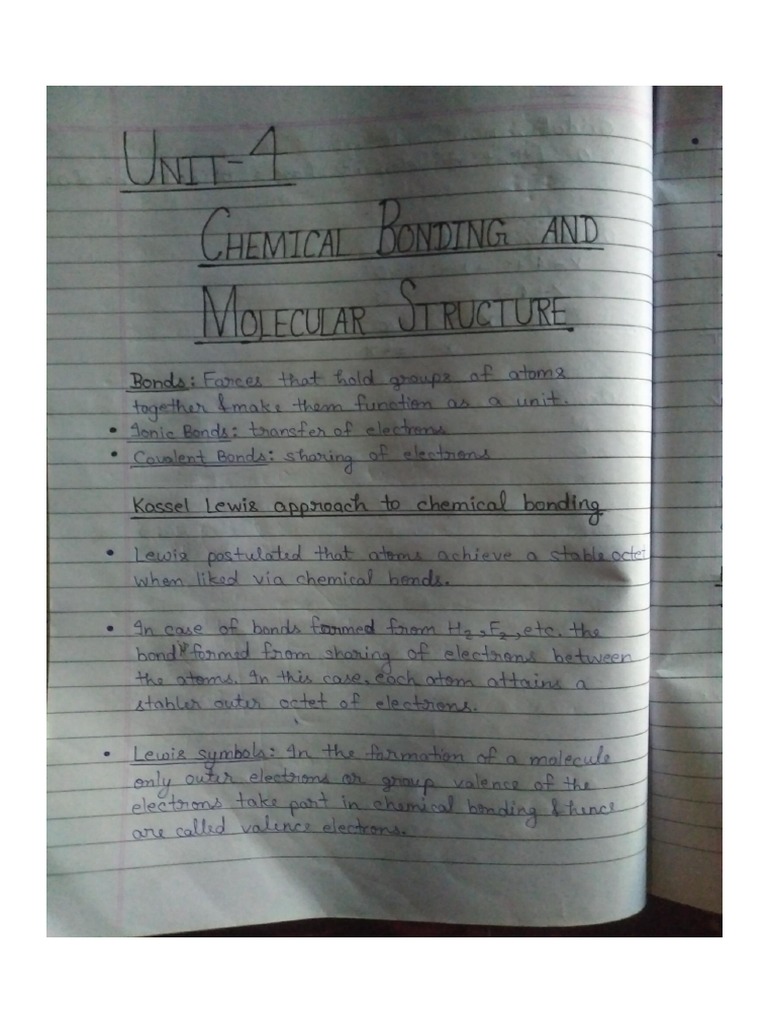 UNIT-4
CHEMICAL BONDING AND
MOLECULAR STRUCTURE
Bonds: Forces that hold groups of atoms
together & make them function as a unit.
• Ionic Bonds: transfer of electrons
• Covalent Bonds: sharing of electrons
Kossel Lewis approach to chemical bonding
• Lewis postulated that atoms achieve a stable octet
when liked via chemical bonds.
• In case of bonds formed from H₂, F₂, etc. the
bond is formed from sharing of electrons between
the atoms. In this case, each atom attains a
stabler outer octet of electrons.
• Lewis symbols: In the formation of a molecule
only outer electrons or group valence of the
electrons take part in chemical bonding & hence
are called valence electrons.